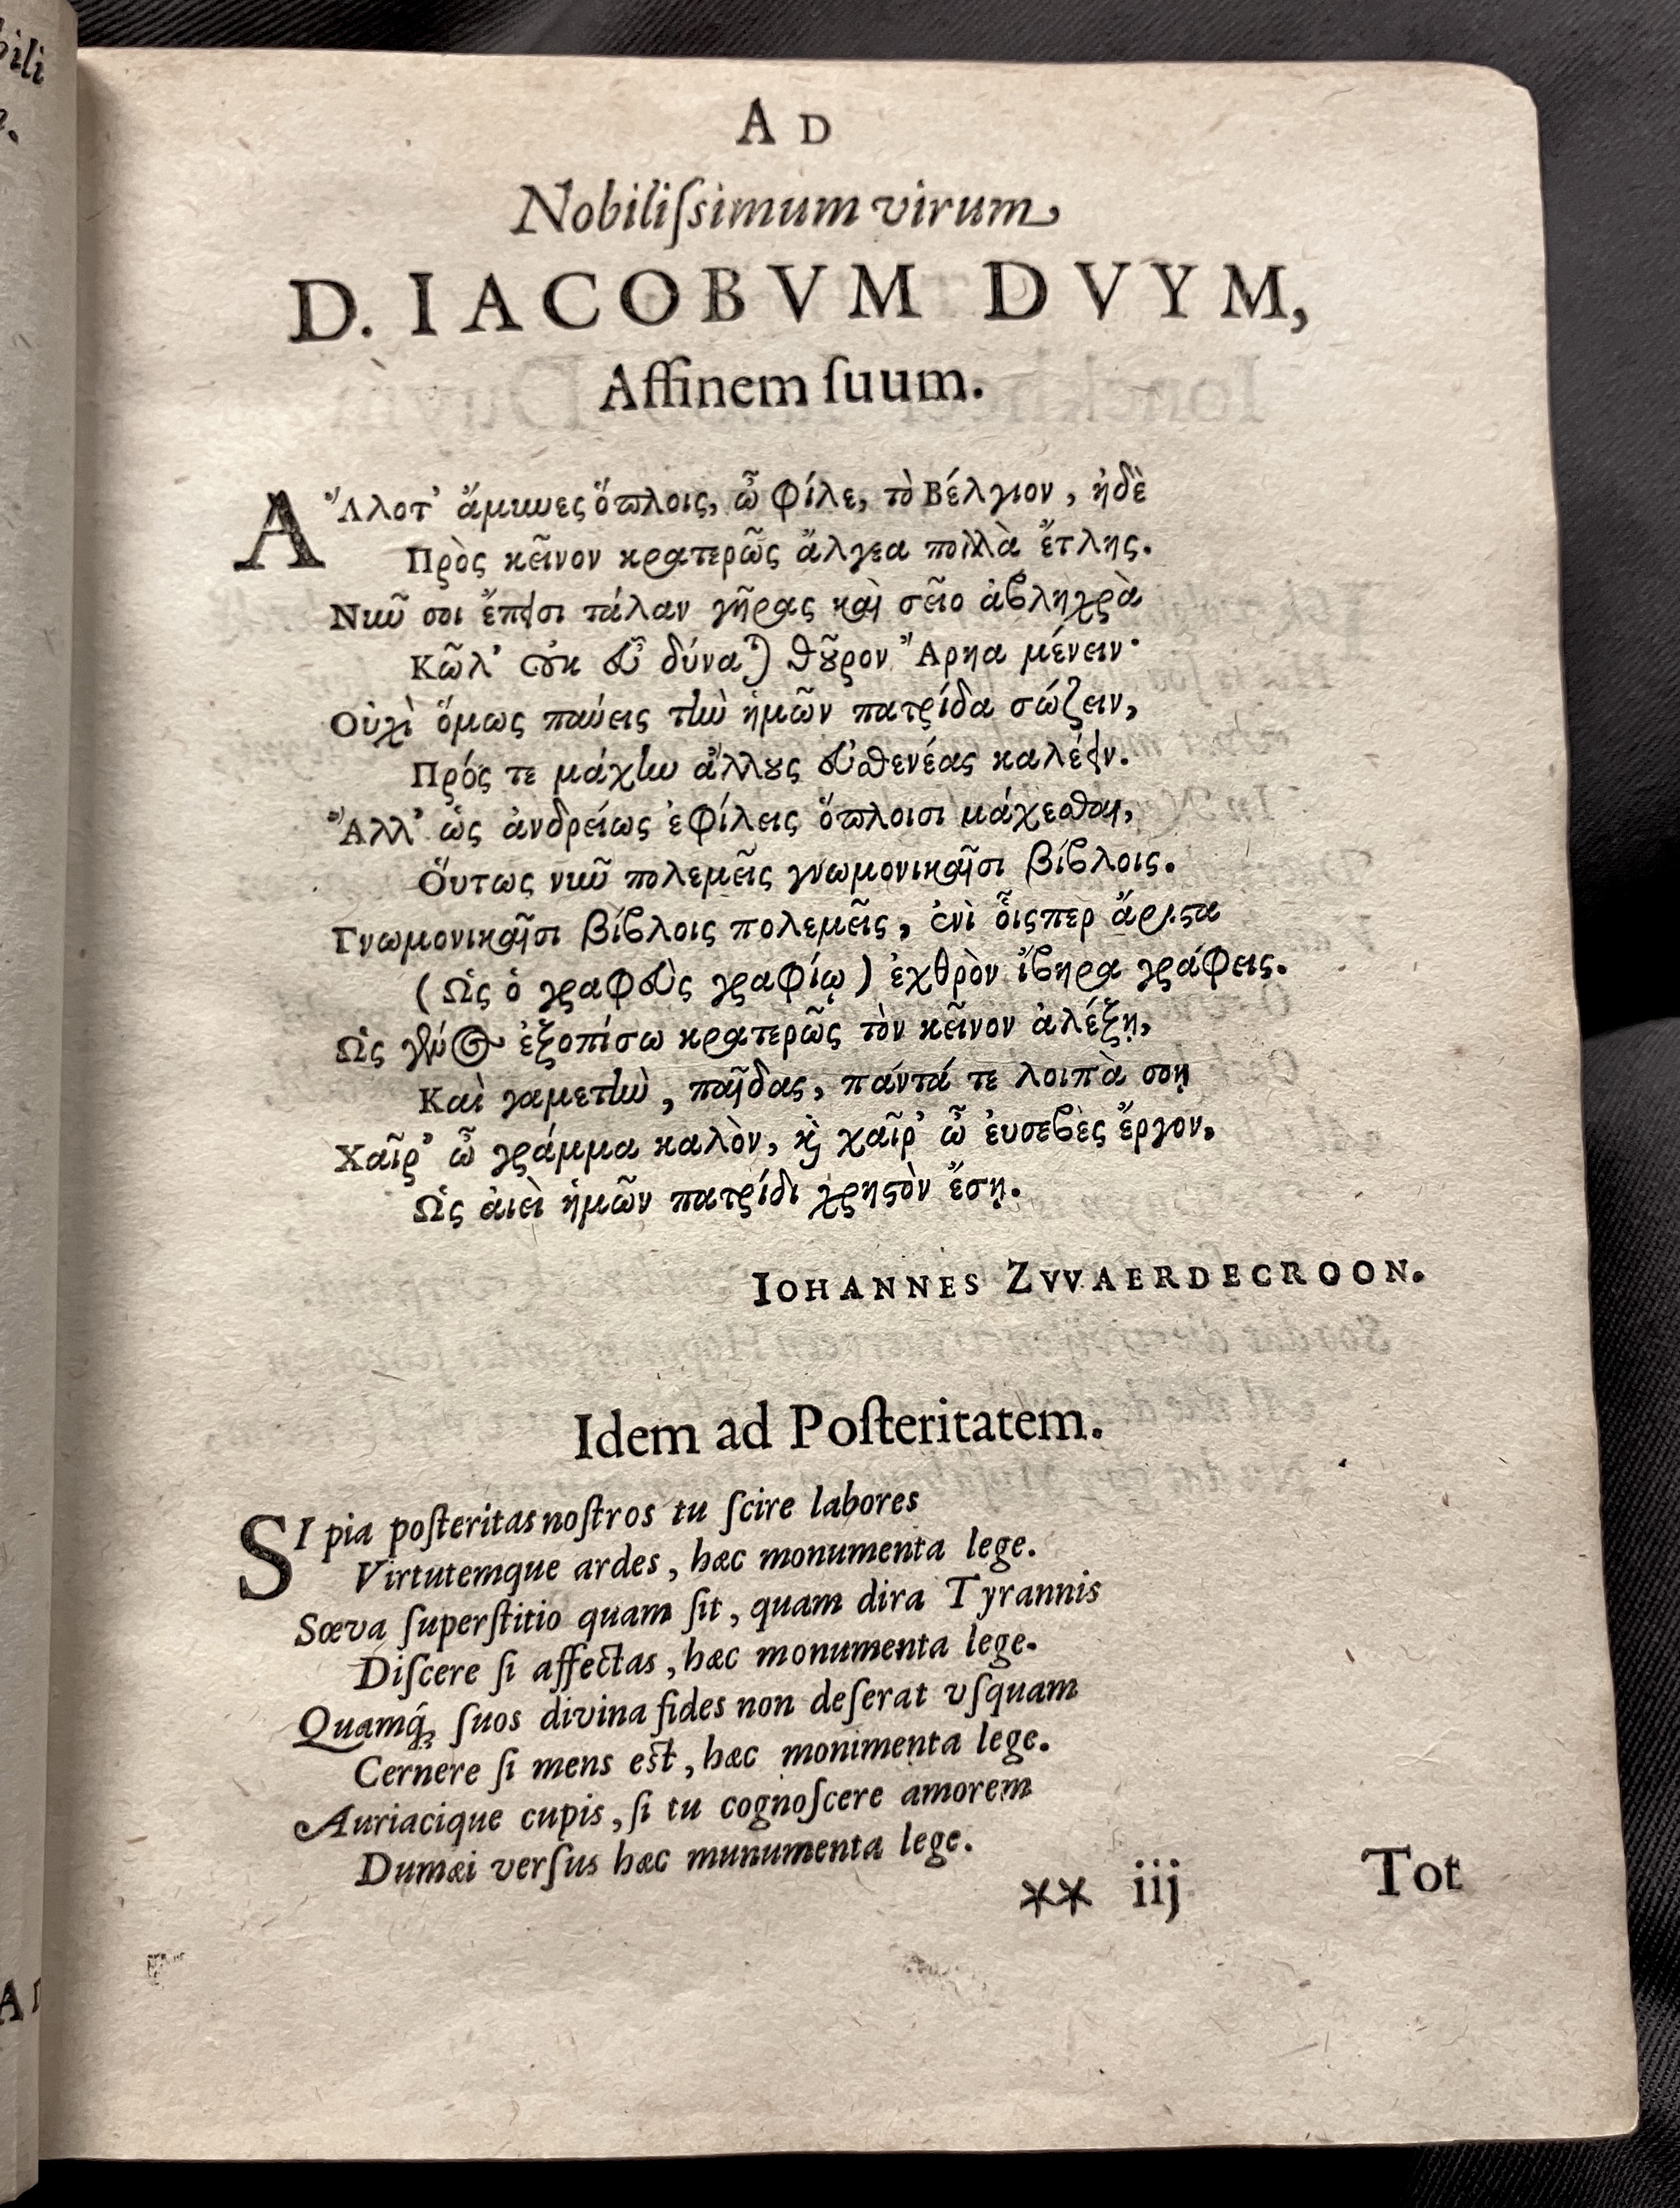 bili
e.
AD
Nobiliſsimum virum
D. IACOBVM DVYM,
Affinem ſuum.
Ἄλλοτ' ἄμυνες ὅπλοις, ὦ φίλε, τὸ Βέλγιον, ἠδὲ
Πρὸς κεῖνον κρατερῶς ἄλγεα πολλὰ ἔτλης.
Νῦν σοι ἔπεισι τάλαν γῆρας καὶ σεῖο ἀβληχρὰ
Κῶλ' οὐκ εὖ δύναται θοῦρον Ἄρηα μένειν·
Οὐχὶ ὅμως παύεις τὴν ἡμῶν πατρίδα σώζειν,
Πρός τε μάχην ἄλλους εὐσθενέας καλέειν.
Ἀλλ' ὡς ἀνδρείως ἐφίλεις ὅπλοισι μάχεσθαι,
Ὅυτως νῦν πολεμεῖς γνωμονικαῖσι βίβλοις.
Γνωμονικαῖσι βίβλοις πολεμεῖς, ἐνὶ οἷσπερ ἄριστα
(Ὡς ὁ γραφεὺς γραφίῳ) ἐχθρὸν ἴβηρα γράφεις.
Ὡς γένος ἐξοπίσω κρατερῶς τὸν κεῖνον ἀλέξῃ,
Καὶ γαμετὴν, παῖδας, πάντά τε λοιπὰ σοῃ
Χαῖρ' ὦ γράμμα καλὸν, καὶ χαῖρ' ὦ ἐυσεβὲς ἔργον,
Ὡς ἀιεὶ ἡμῶν πατρίδι χρηστὸν ἔσῃ.
IOHANNES ZVVAERDECROON.
Idem ad Poſteritatem.
SI pia poſteritas noſtros tu ſcire labores
Virtutemque ardes, hæc monumenta lege.
Sæva ſuperſtitio quam ſit, quam dira Tyrannis
Diſcere ſi affectas, hæc monumenta lege.
Quamq́; ſuos divina fides non deſerat vſquam
Cernere ſi mens eſt, hæc monimenta lege.
Auriacique cupis, ſi tu cognoſcere amorem
Dumæi verſus hæc munumenta lege.
** iij Tot